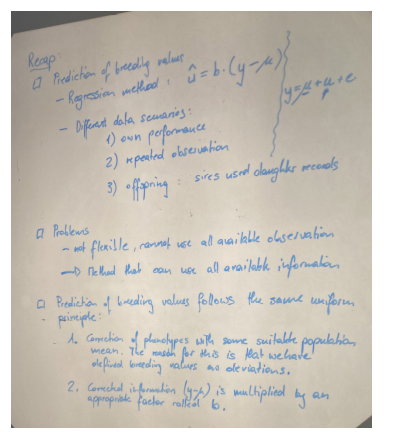 Recap:
□ Prediction of breeding values
- Regression method : û = b · (y - μ)
y = μ + u + e
- Different data scenarios:
1) own performance
2) repeated observation
3) offspring : sires used daughter records
□ Problems
- not flexible, cannot use all available observation
→ Method that can use all available information
□ Prediction of breeding values follows the same uniform
- principle:
1. Correction of phenotypes with some suitable population
mean. The reason for this is that we have
defined breeding values as deviations.
2. Corrected information (y-μ) is multiplied by an
appropriate factor called b.